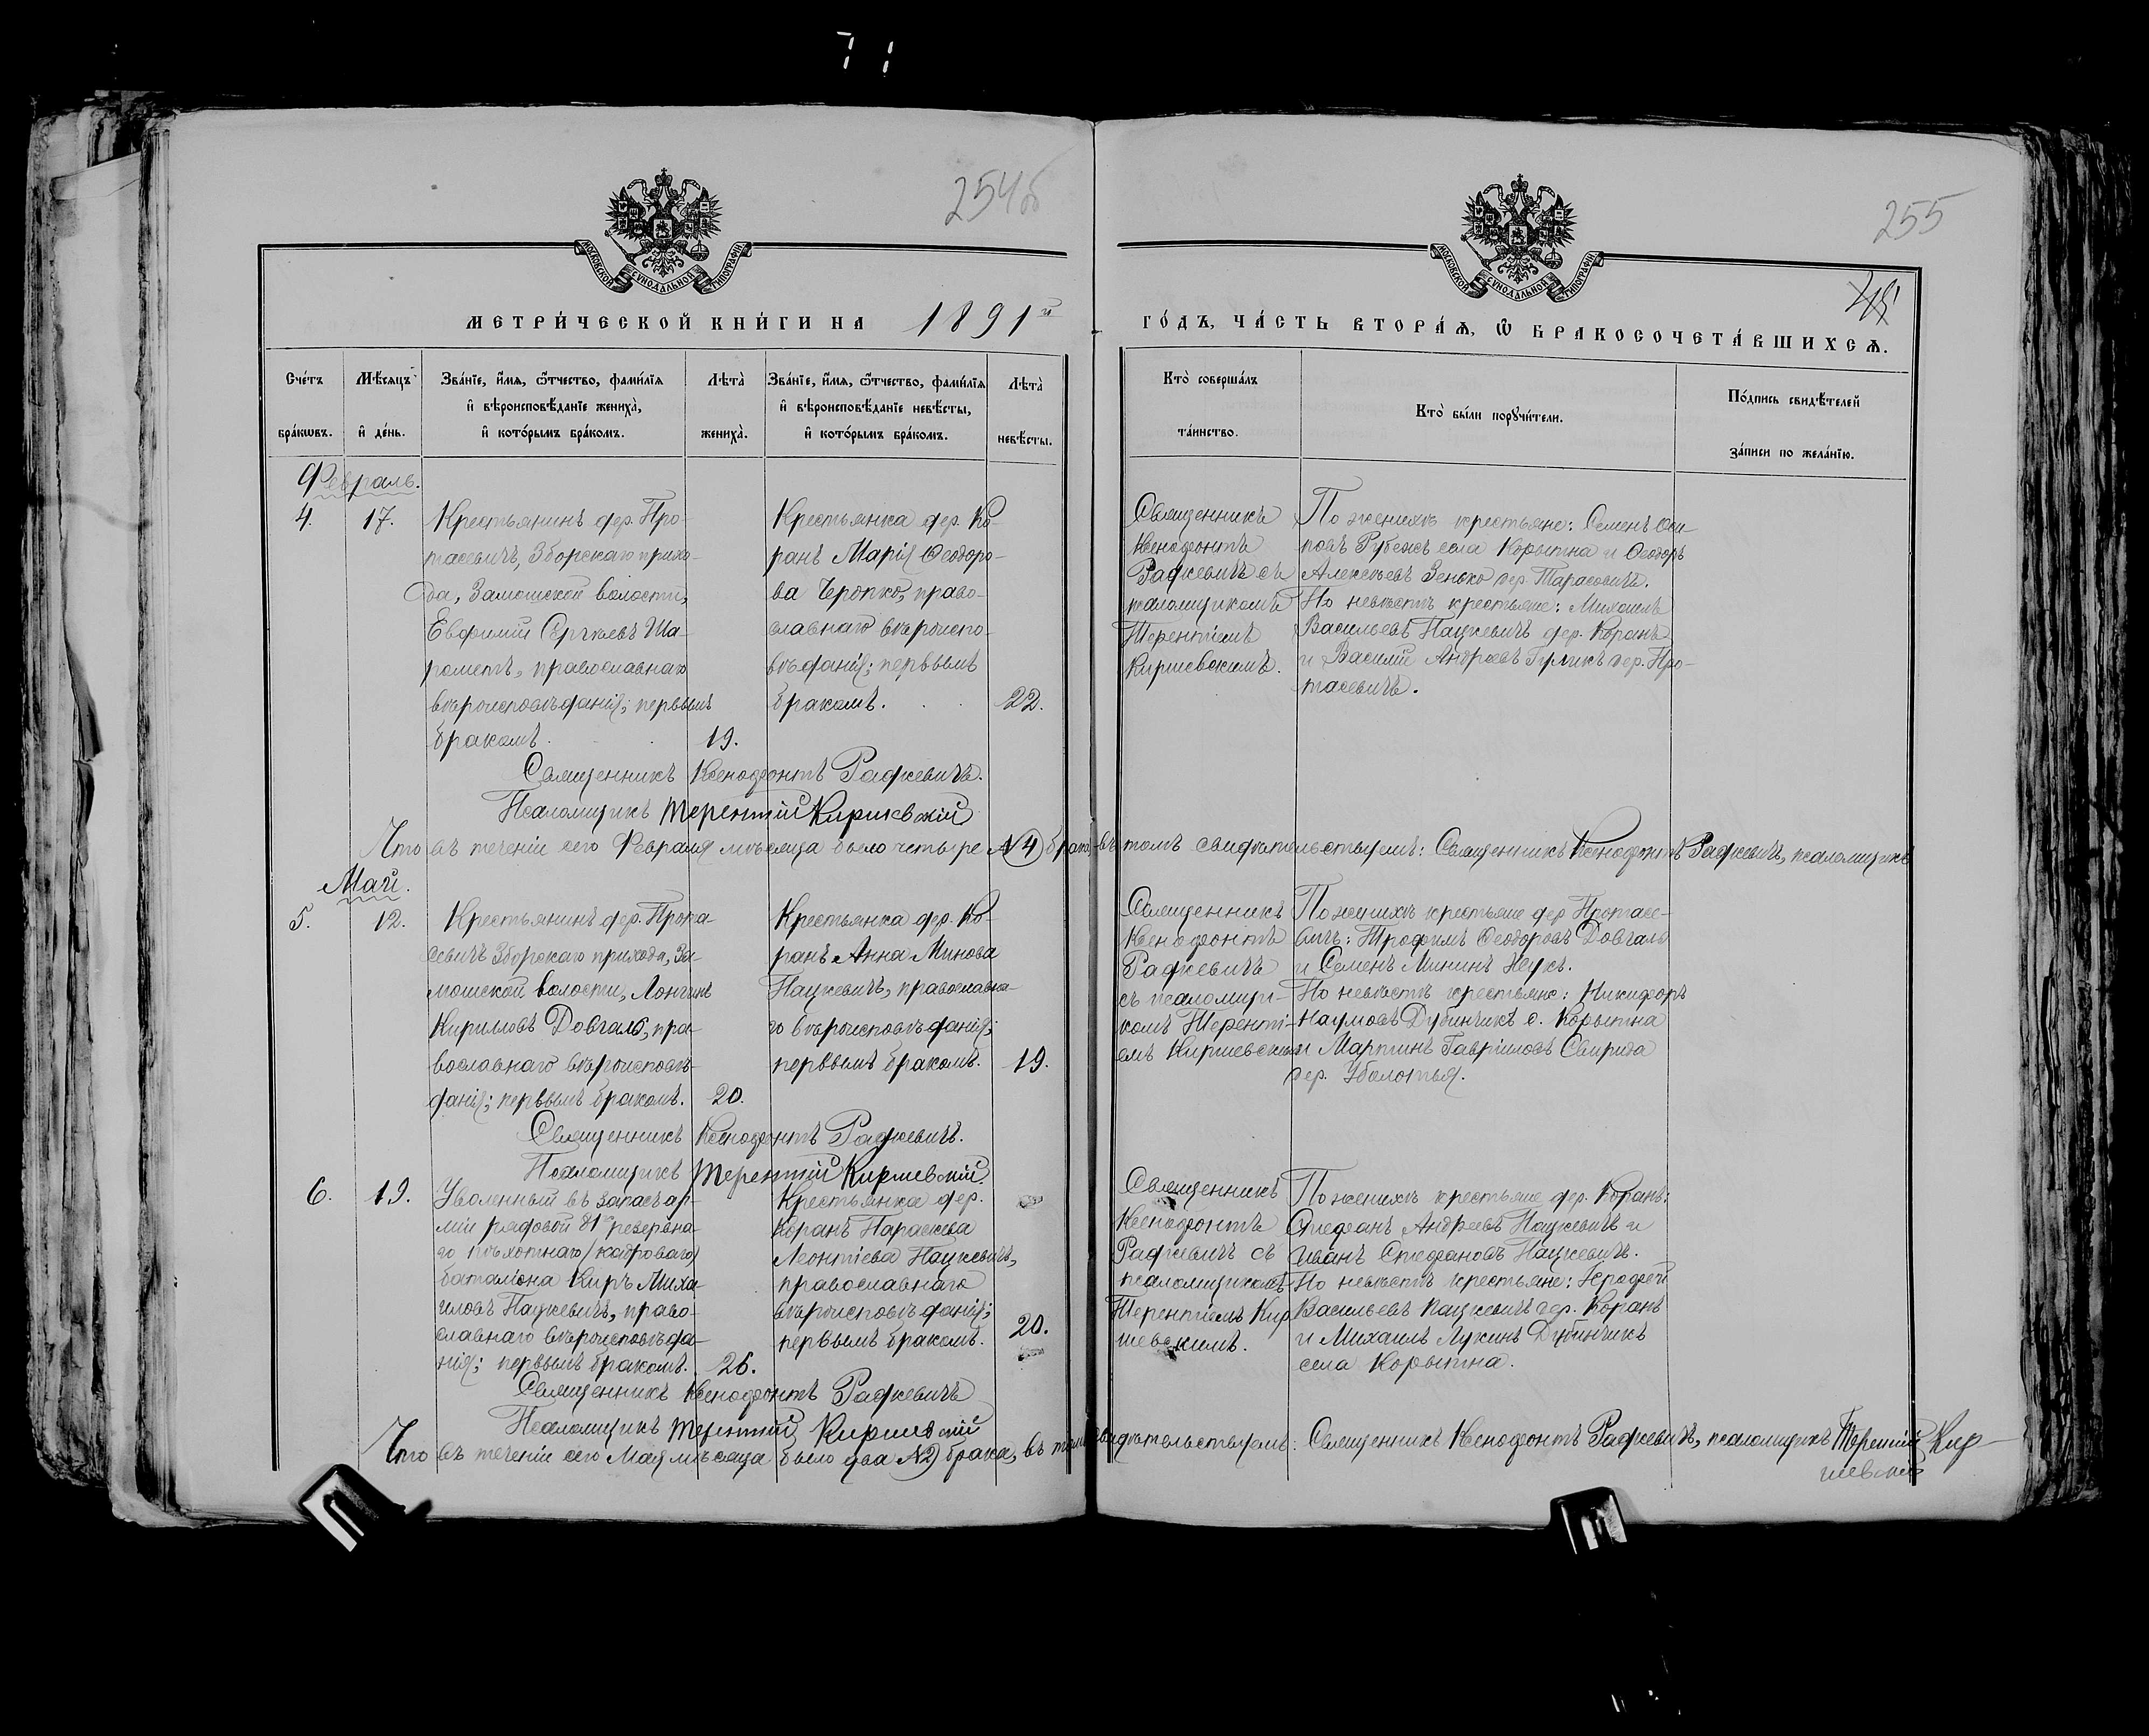 71
254об
255
МОСКОВСКОЙ СУНОДАЛЬНОЙ ТИПОГРАФІИ
МОСКОВСКОЙ СУНОДАЛЬНОЙ ТИПОГРАФІИ
МЕТРИ́ЧЕСКОЙ КНИ́ГИ НА 1891й
ГО́ДЪ, ЧА́СТЬ ВТОРА́Ѧ, Ѿ БРАКОСОЧЕТА́ВШИХСѦ.
Сче́тъ бра́кѡвъ.
Мѣ́сяцъ и҆ де́нь.
Зва́нїе, и҆́мѧ, ѻ҆́тчество, фами́лїѧ
и҆ вѣроисповѣ́данїе жениха̀,
и҆ кото́рымъ бра́комъ.
Лѣта̀ жениха̀.
Зва́нїе, и҆́мѧ, ѻ҆́тчество, фами́лїѧ
и҆ вѣроисповѣ́данїе невѣ́сты,
и҆ кото́рымъ бра́комъ.
Лѣта̀ невѣ́сты.
Кто̀ соверша́лъ та́инство.
Кто̀ бы́ли порꙋчи́тели.
По́дпись свидѣ́телей за́писи по жела́нїю.
Февраль.
4.
17.
Крестьянинъ дер. Про-
тасевичъ, Зборскаго прихо-
да, Замошской волости,
Евфимій Сергѣевъ Ша-
рометъ, православнаго
вѣроисповѣданія; первымъ
бракомъ.
19.
Крестьянка дер. Ко-
ранъ Марія Ѳеодоро-
ва Чропко, право-
славнаго вѣроиспо-
вѣданія; первымъ
бракомъ.
22.
Священникъ
Ксенофонтъ
Радкевичъ съ
псаломщикомъ
Терентіемъ
Киршевскимъ.
По женихѣ крестьяне: Семенъ Оси-
повъ Рубежъ села Корытна и Ѳеодоръ
Алексѣевъ Зенько дер. Тарасовичъ.
По невѣстѣ крестьяне: Михаилъ
Васильевъ Пацкевичъ дер. Коранъ
и Василій Андреевъ дер. Про-
тасевичъ.
Священникъ Ксенофонтъ Радкевичъ.
Псаломщикъ Терентій Киршевскій
Что въ теченіи сего Февраля мѣсяца было четыре №4 брака, въ томъ свидѣтельствуемъ: Священникъ Ксенофонтъ Радкевичъ, псаломщикъ
Май.
5.
12.
Крестьянинъ дер. Прота-
севичъ Зборскаго прихода, За-
мошской волости, Лонгинъ
Кириловъ Довгаль, пра-
вославнаго вѣроисповѣ-
данія; первымъ бракомъ.
20.
Крестьянка дер. Ко-
ранъ Анна Минова
Пацкевичъ, православна-
го вѣроисповѣданія;
первымъ бракомъ.
19.
Священникъ
Ксенофонтъ
Радкевичъ
съ псаломщи-
комъ Теренті-
емъ Киршевскимъ
По женихѣ крестьяне дер. Протасе-
вичъ: Трофимъ Ѳеодоровъ Довгаль
и Семенъ Мининъ
По невѣстѣ крестьяне: Никифоръ
Наумовъ Дубинчикъ с. Корытна
и Мартинъ Гавріиловъ Свирида
дер. Уболотья.
Священникъ Ксенофонтъ Радкевичъ.
Псаломщикъ Терентій Киршевскій.
6.
19.
Уволенный въ запасъ ар-
міи рядовой 81го резервна-
го пѣхотнаго (кадроваго)
баталіона Киръ Миха-
иловъ Пацкевичъ, право-
славнаго вѣроисповѣда-
нія; первымъ бракомъ.
26.
Крестьянка дер.
Коранъ Параскева
Леонтіева Пацкевичъ,
православнаго
вѣроисповѣданія;
первымъ бракомъ.
20.
Священникъ
Ксенофонтъ
Радкевичъ съ
псаломщикомъ
Терентіемъ Кир-
шевскимъ.
По женихѣ крестьяне дер. Коранъ:
Стефанъ Андреевъ Пацкевичъ и
Иванъ Стефановъ Пацкевичъ.
По невѣстѣ крестьяне: Ерофей
Васильевъ Пацкевичъ дер. Коранъ
и Михаилъ Лукинъ Дубинчикъ
села Корытна.
Священникъ Ксенофонтъ Радкевичъ
Псаломщикъ Терентій Киршевскій
Что въ теченіи сего Мая мѣсяца было два №2) брака, въ томъ свидѣтельствуемъ: Священникъ Ксенофонтъ Радкевичъ, псаломщикъ Терентій Кир-
шевскій